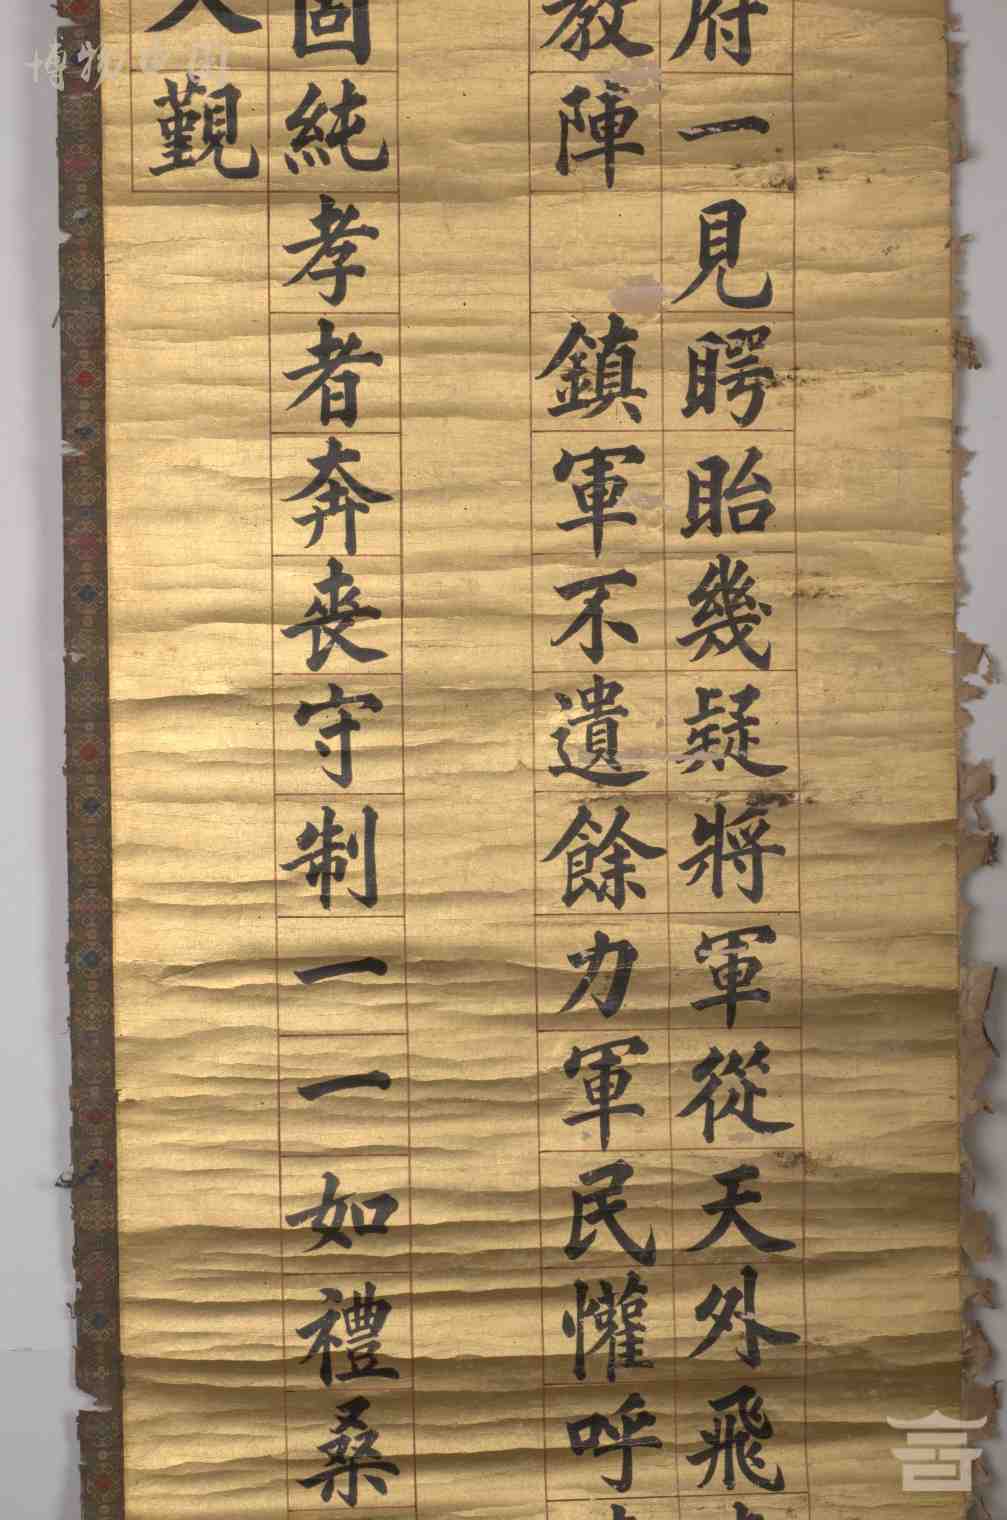 府一見瞪眙幾疑將軍從天外飛
教陣 鎮軍不遺餘力軍民懽呼
固純孝者奔喪守制一一如禮桑
覲
博物中國